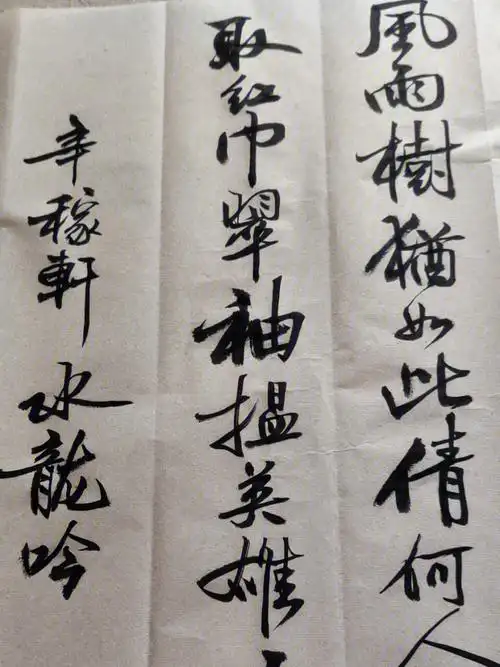 風雨樹猶如此倩何人
取紅巾翠袖搵英雄
辛稼軒 水龍吟